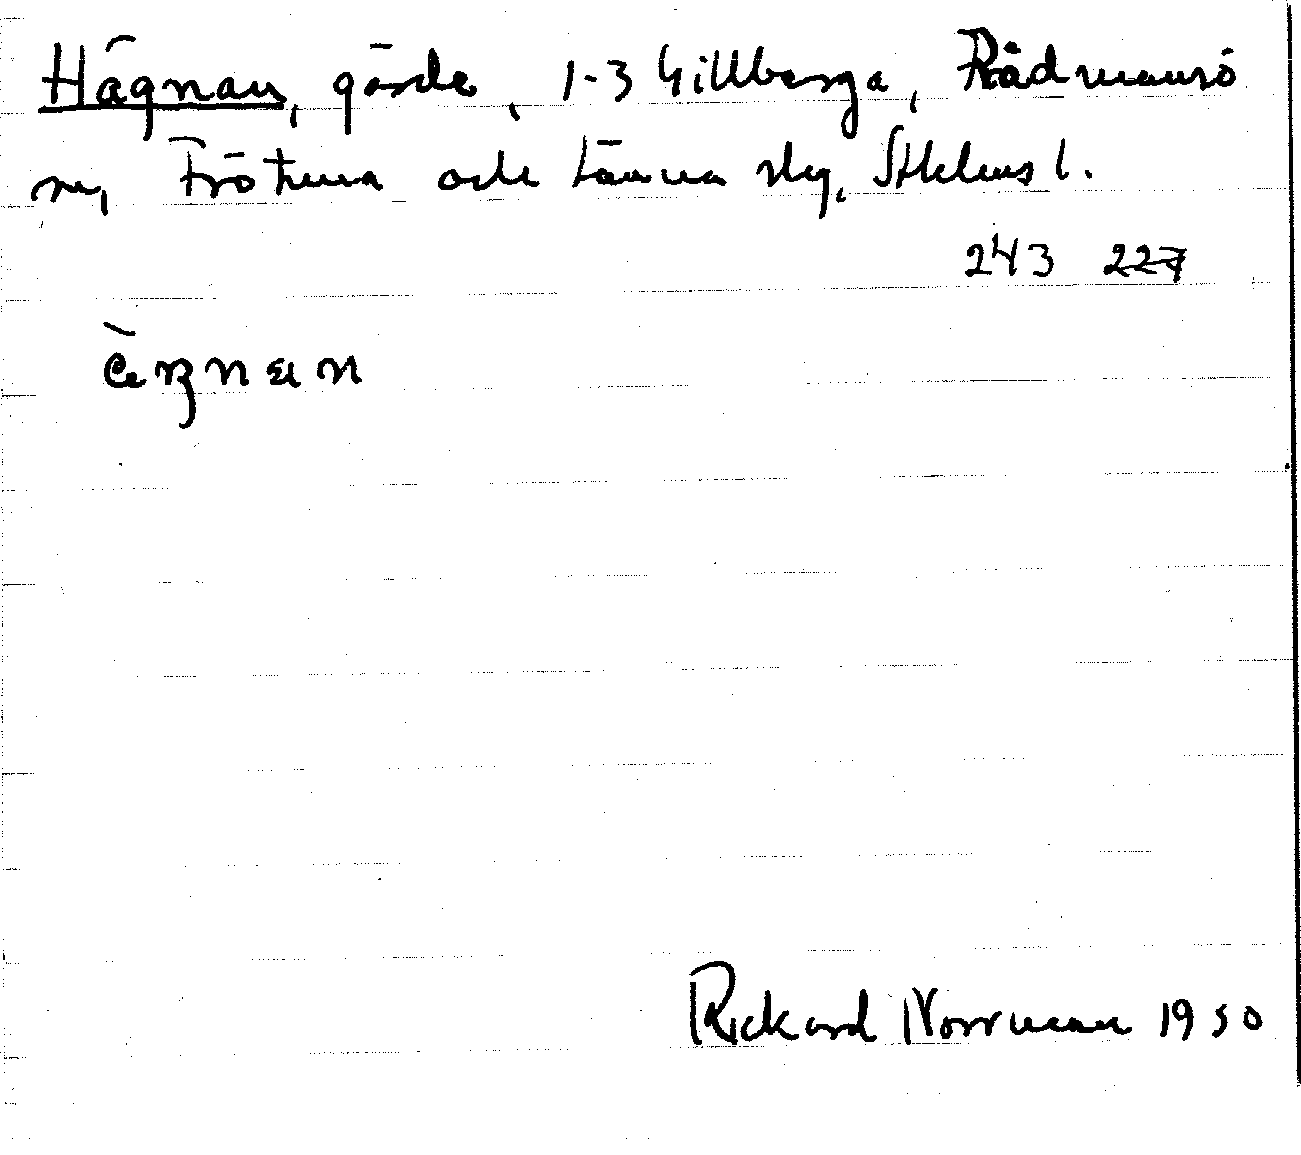 Hägnan, gärde, 1-3 Gillberga, Rådmansö
sn, Frötuna och Länna slg, Sthlms l.
243 227
Rickard Norrman 1950